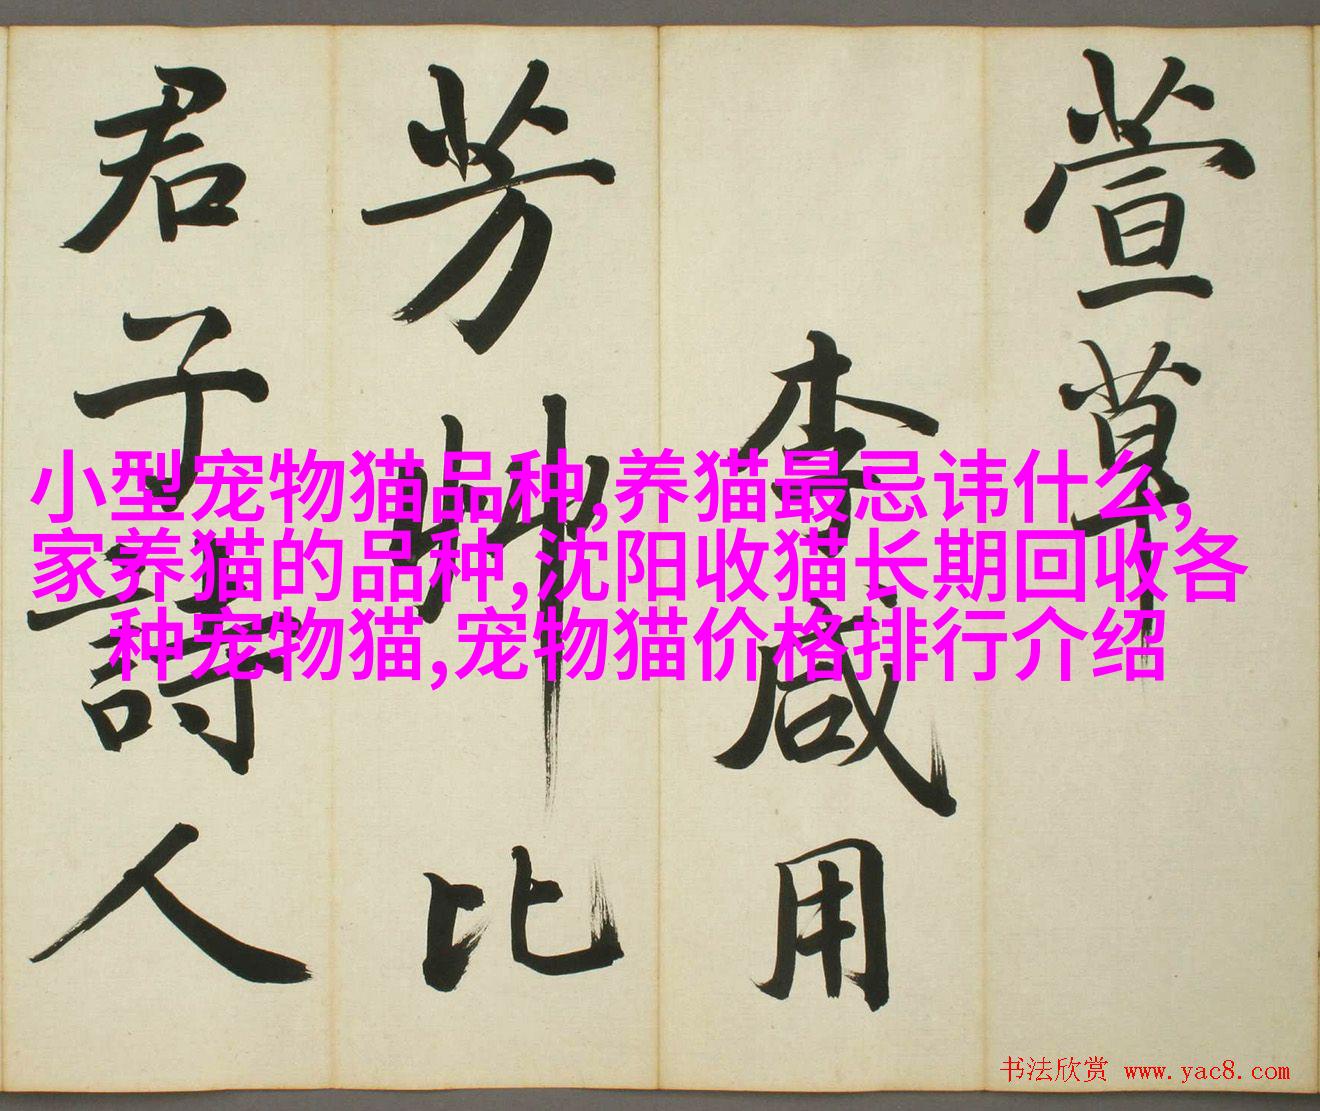 萱草
李咸用
芳艸比
君子詩人
小型宠物猫品种,养猫最忌讳什么,
家养猫的品种,沈阳收猫长期回收各
种宠物猫,宠物猫价格排行介绍
书法欣赏 www.yac8.com